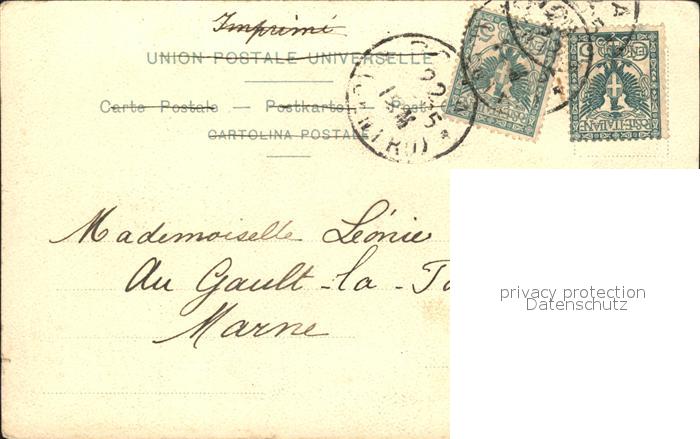 Imprimé
UNION POSTALE UNIVERSELLE
Carte Postale — Postkarte — Post
CARTOLINA POSTALE
22
5
(CENTRO)
POSTE ITALIANE
Mademoiselle Léonie
Au Gault-la-
Marne
privacy protection
Datenschutz